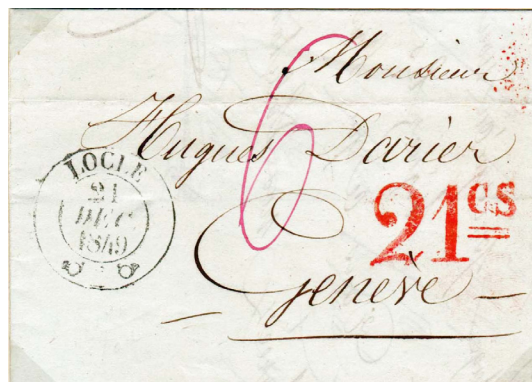 Monsieur
Hugues Darier
6
LOCLE
21
DEC
1849
21 cs
Genève